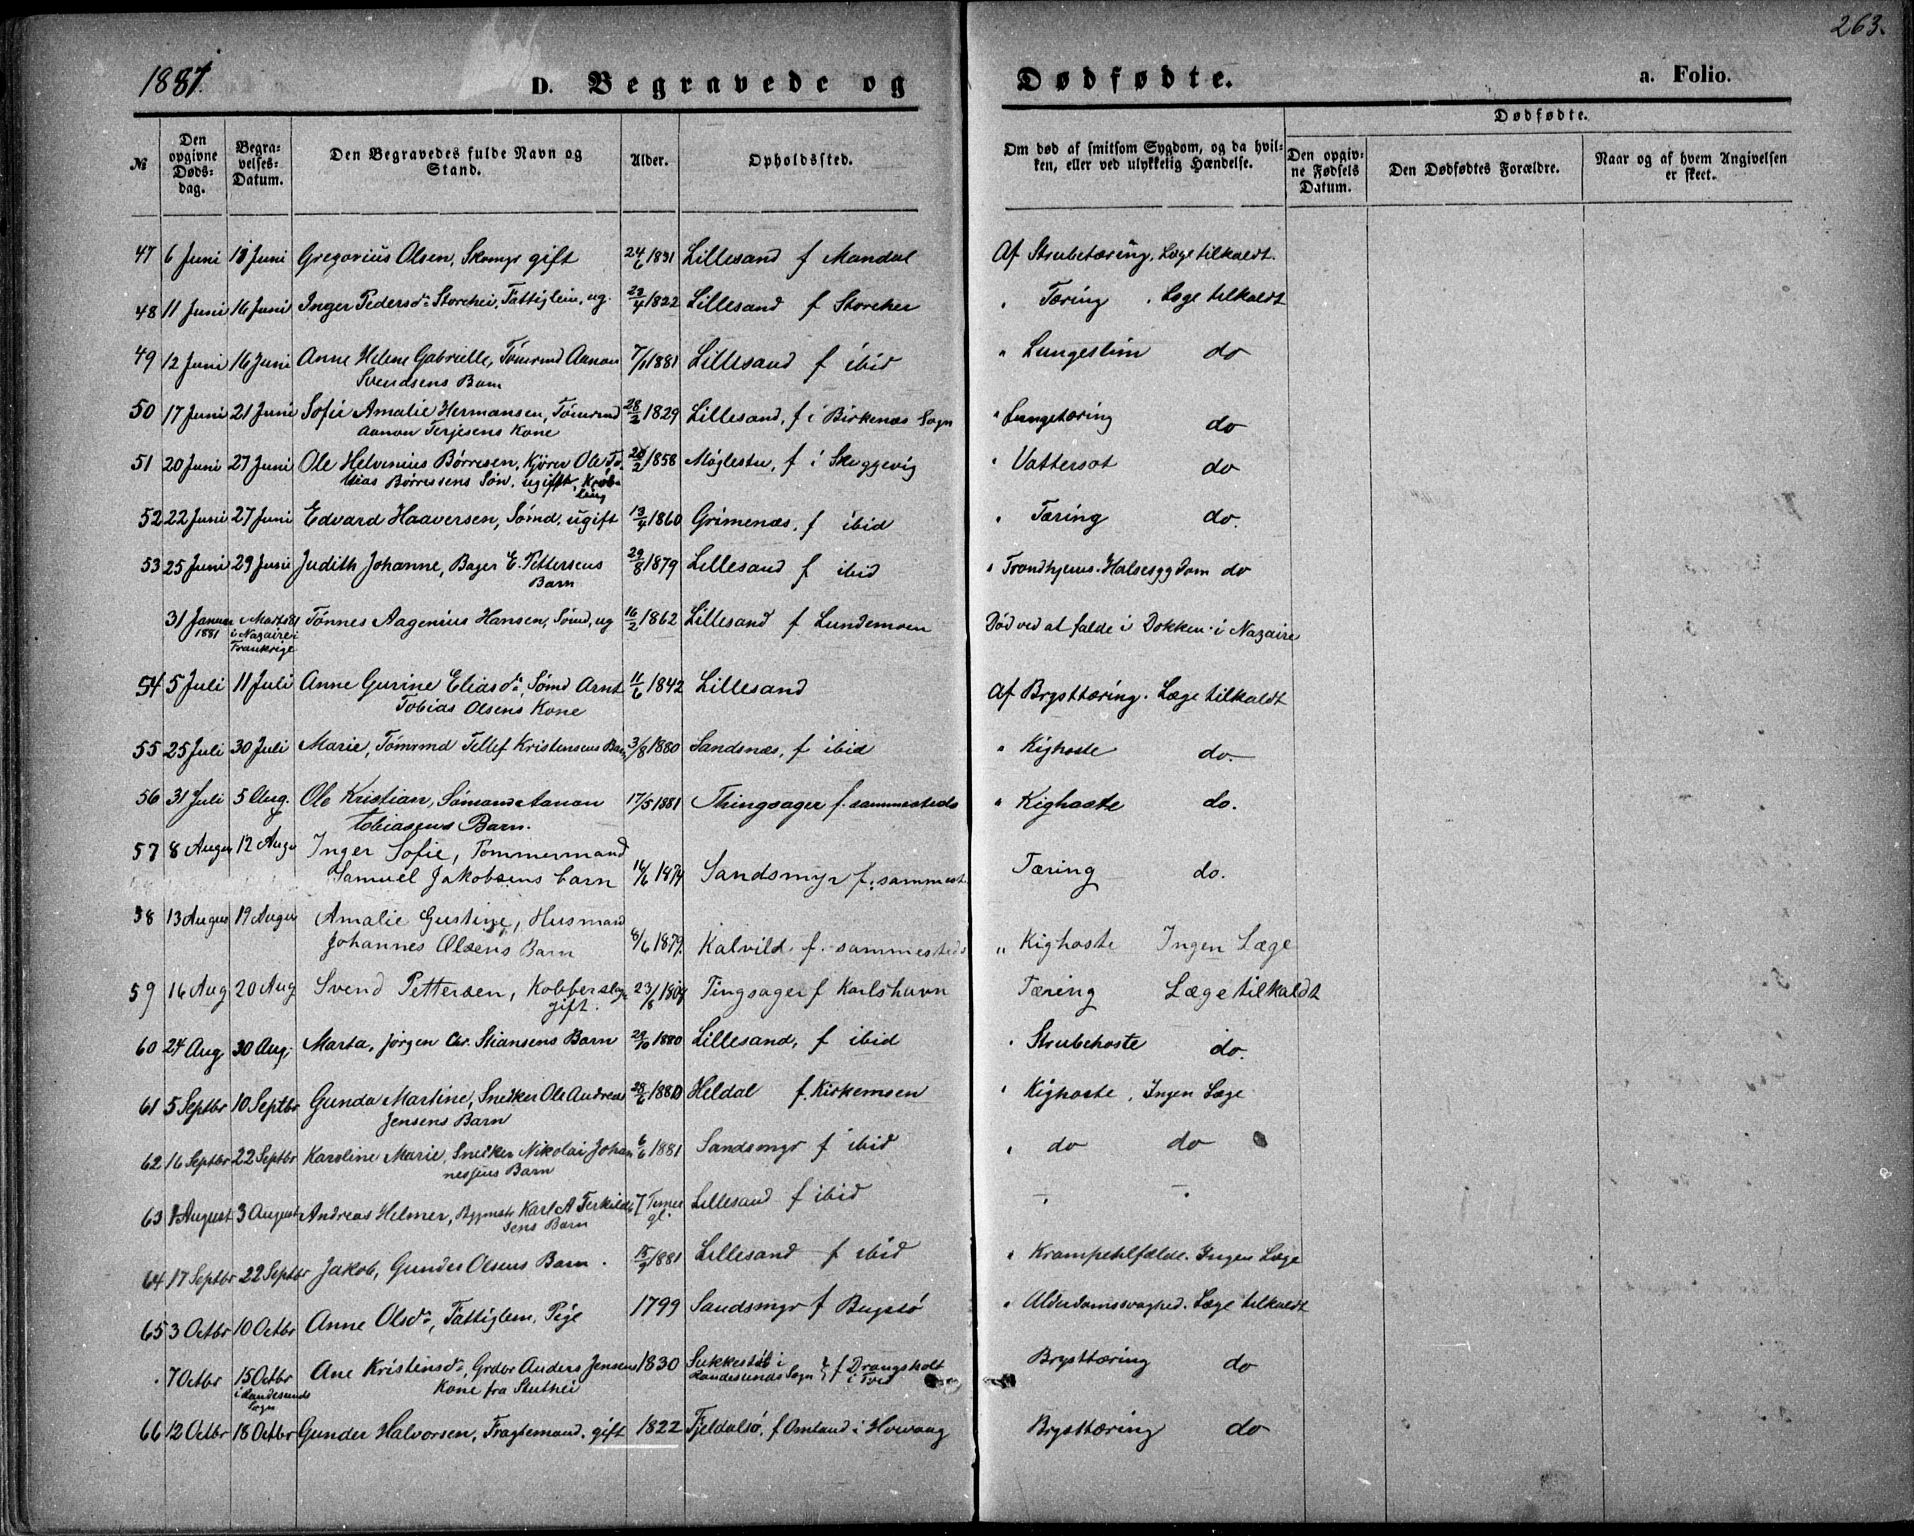 263.
1881.
D. Begravede og Dødfødte.
a. Folio.
№
Den opgivne Døds-dag.
Begra-velses-Datum.
Den Begravedes fulde Navn og Stand.
Alder.
Opholdssted.
Om død af smitsom Sygdom, og da hvil-ken, eller ved ulykkelig Hændelse.
Dødfødte.
Den opgiv-ne Fødsels Datum.
Den Dødfødtes Forældre.
Naar og af hvem Angivelsen er skeet.
47 6 Juni Juni Gregorius Olsen, Skomgr gift 24/6 1831 Lillesand f Mandal Af Strubetæring. Læge tilkaldt.
48 11 Juni 16 Juni Inger Pedersd: Storehei, Fattiglem, ug. 23/4 1822 Lillesand f Storehei " Tæring . Læge tilkaldt
49 12 Juni 16 Juni Anne Helene Gabrielle, Tømrmd Aanon 1881 Lillesand f ibid " Lungestim do
Svendsens Barn
50 17 Juni 21 Juni Sofie Amalie Hermansen, Tømrmd 28/2 1829 Lillesand, f i Birkenæs Sogn " Lungetæring do
Aanon Terjesens Kone
51 20 Juni 27 Juni Ole Helvinius Børresen, Kjører Ole To- 1858 Møglestu, f i Skiggevig " Vattersot do
bias Børressens Søn, ugift, Krøb-
ling
52 22 Juni 27 Juni Edvard Haaversen, Sømd, ugift 13/4 1860 Grimenæs, f ibid " Tæring do.
53 25 Juni 29 Juni Judith Johanne, Bager E. Pettersens 29/8 1879 Lillesand f ibid " Trondhjems Halssygdom do
Barn
31 Januar 1881 Marts 81 i Nazaire i Frankrige Tønnes Aagenius Hansen, Sømd, ug 16/2 1862 Lillesand f Lundemoen Død ved at falde i Dokken i Nazaire
54 5 Juli 11 Juli Anne Gurine Eliasd:, Sømd Arnt 11/6 1842 Lillesand Af Brysttæring. Læge tilkaldt
Tobias Olsens Kone
55 25 Juli 30 Juli Marie, Tømrmd Tellef Kristensens Barn 3/8 1880 Sandsnæs, f ibid " Kighoste do.
56 31 Juli 5 Aug. Ole Kristian, Sømand Aanon 17/5 1881 Thingsager f. sammesteds " Kighoste do.
Tobiasens Barn.
57 8 Augu 12 Augu Inger Sofie, Tømmermand
Samuel Jakobsens barn 16/6 1874 Sandsmyr f. sammest Tæring do.
58 13 August 19 Augu Amalie Gustine, Husmand
Johannes Olsens Barn 8/6 1879. Kalvild. f. sammesteds " Kighoste Ingen Læge
59 16 Aug 20 Aug Svend Pettersen, Kobberslag 23/8 Tingsager f Karlshavn Tæring Læge tilkaldt
gift.
60 24 Aug 30 Aug. Marta, Jørgen Chr. Stiansens Barn 29/10 1880 Lillesand, f ibid " Strubehoste do.
61 5 Septbr 10 Septbr Gunda Martine, Snedker Ole Andreas 28/6 1880 Heldal f. Kirkemoen " Kighoste, Ingen Læge
Jensens Barn
62 16 Septbr 22 Septbr Karoline Marie, Snedker Nikolai Johan 6/6 1881 Sandsmyr f ibid " do do
nessens Barn
63 1 August 3 August Andreas Helmer, Bygmstr Karl A Terkild- 7 Timer gl. Lillesand f ibid
sens Barn
64 17 Septbr 22 Septbr Jakob, Gunder Olsens Barn. 15/9 1881 Lillesand f ibid " Krampetilfælde. Ingen Læge
65 3 Octbr 10 Octbr Anne Olsd:, Fattiglem, Pige 1799 Sandsmyr f Bugstø " Alderdomssvaghed. Læge tilkaldt
7 Octbr 15 Octbr i Landesunds Sogn Ane Kristensd:, Grdbr Anders Jensens 1830 Sukkestøl i Landesunds Sogn, f Drangsholt i Tveit Brysttæring do
Kone fra Stuthei
66 12 Octbr 18 Octbr Gunder Halvorsen, Fragtemand, gift 1822 Fjeldalsø, f Omland i Høivaag Brysttæring do